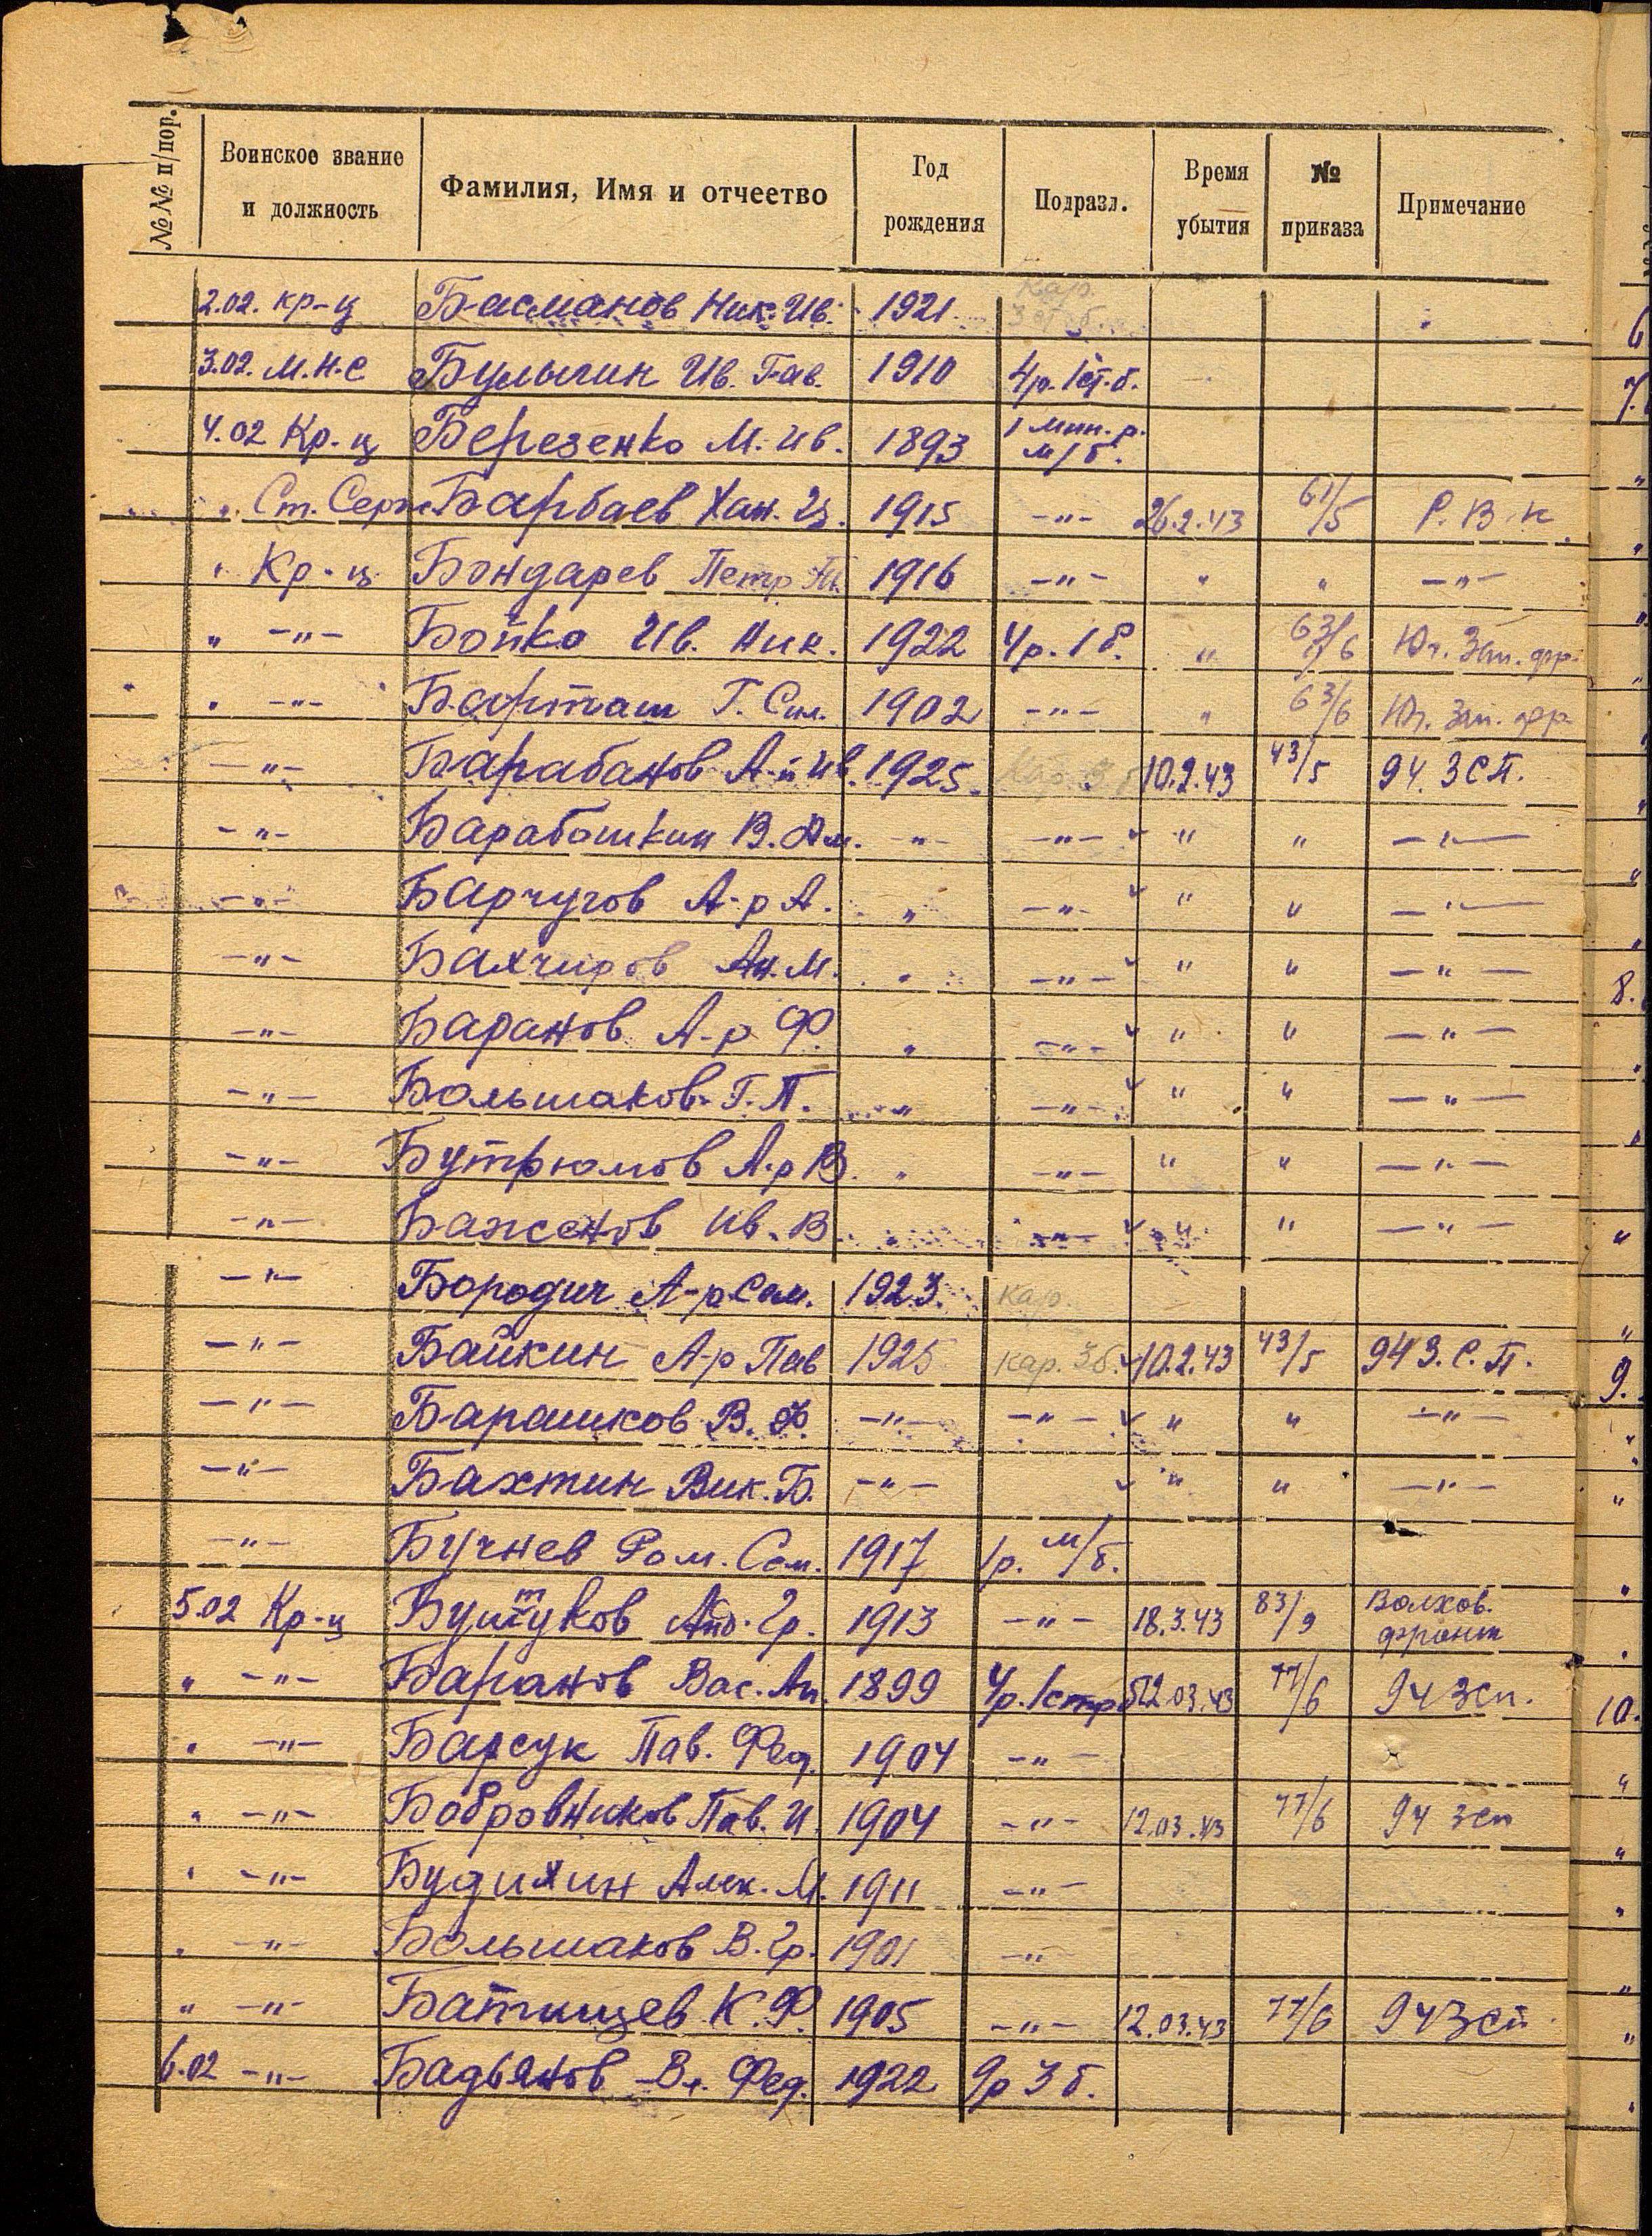 №№ п/пор. Воинское звание и должность Фамилия, Имя и отчество Год рождения Подразд. Время убытия № приказа Примечание
2.02. кр-ц Басманов Ник. Ив. 1921 Кар.
3.02. М.Н.С. Булыгин Ив. Гав. 1910 4р. 1 ст. б.
4.02 Кр-ц Березенко М. Ив. 1893 1 мин. р. м/б.
" Ст. Серж Барбаев Хан. 1915 -"- 26.2.43 61/5 Р.В.К
" Кр-ц Бондарев Петр 1916 -"- " " -"-
" -"- Бойко Ив. Ник. 1922 4р. 1 б. " 63/6 Юг. Зап. фр.
" -"- Барташ Г. Сил. 1902 -"- " 63/6 Юг. Зап. фр.
-"- Барабанов А-й Ив. 1925 Кар. 3 б 10.2.43 43/5 94. ЗСП.
-"- Барабошкин В. Дм. -"- -"- " " -"-
-"- Барчугов А-р А. " -"- " " -"-
-"- Бахчиров Ан. М. " -"- " " -"-
-"- Баранов А-р Ф. " -"- " " -"-
-"- Большаков Г. П. " -"- " " -"-
-"- Бутрюмов А-р В. " -"- " " -"-
-"- Баженов Ив. В -"- " " -"-
-"- Бородич А-р Сам. 1923. Кар.
-"- Байкин А-р Пав 1925 Кар. 3б. 10.2.43 43/5 94 З.С.П.
-"- Барашков В. Ф. -"- -"- " " -"-
-"- Бахтин Вик. Б. -"- " " -"-
-"- Бучнев Ром. Сем. 1917 1р. м/б.
5.02 Кр-ц Гр. 1913 -"- 18.3.43 83/9 Волхов. фронт
" -"- Баранов Вас. Ан. 1899 4р. 1 стр б 12.03.43 77/6 94 зсп.
" -"- Барсук Пав. Фед. 1904 -"-
" -"- Бобровников Пав. И. 1904 -"- 12.03.43 77/6 94 зсп
" -"- Будихин Алек. М. 1911 -"-
" -"- Большаков В. Гр. 1901 -"-
" -"- Батищев К. Ф. 1905 -"- 12.03.43 77/6 94 зсп
6.02 -"- Бадьянов Вл. Фед. 1922 9р 3 б.
6
7.
8.
9.
10.